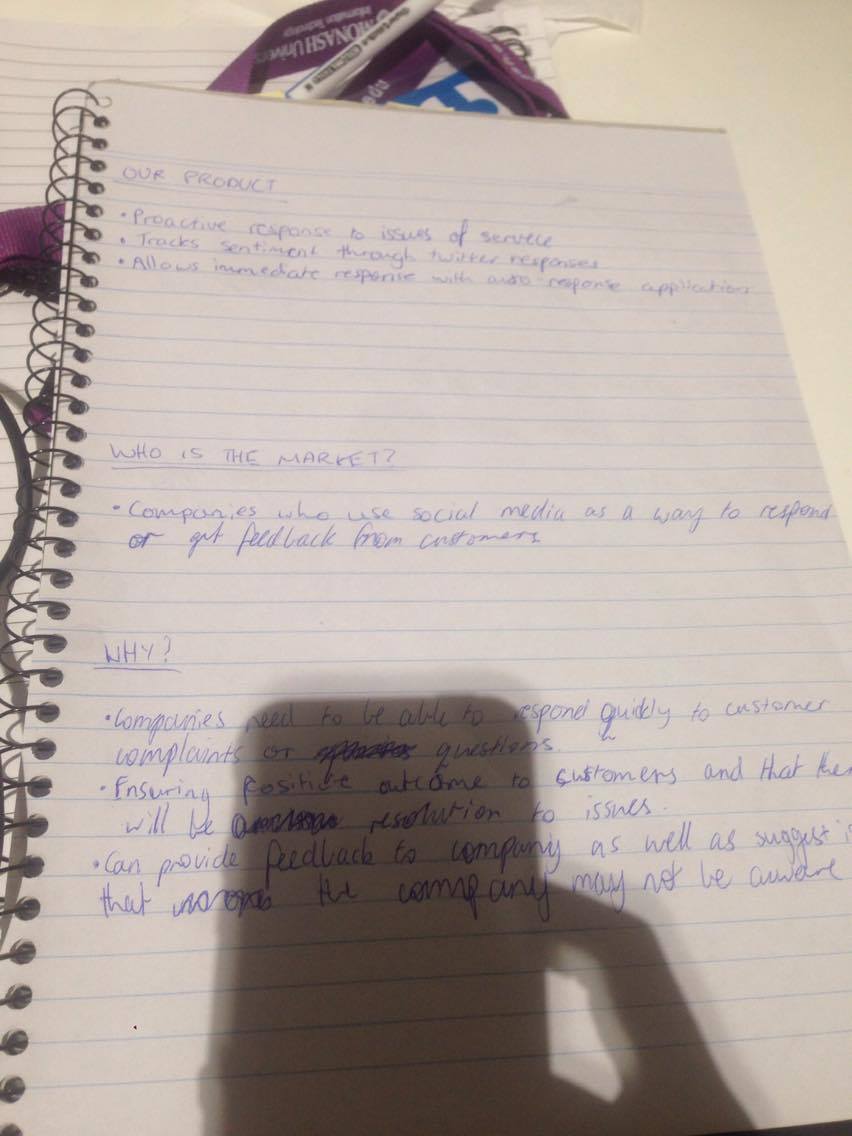 MONASH Univers
Information Technology
edu
OUR PRODUCT
• Proactive response to issues of servece
• Tracks sentiment through twitter responses
• Allows immediate response with auto response application
WHO IS THE MARKET?
• Companies who use social media as a way to respond
or get feedback from customers
WHY?
• Companies need to be able to respond quickly to customer
complaints or questions.
• Ensuring positive outcome to customers and that ther
will be resolution to issues.
• Can provide feedback to company as well as suggest i
that the company may not be aware